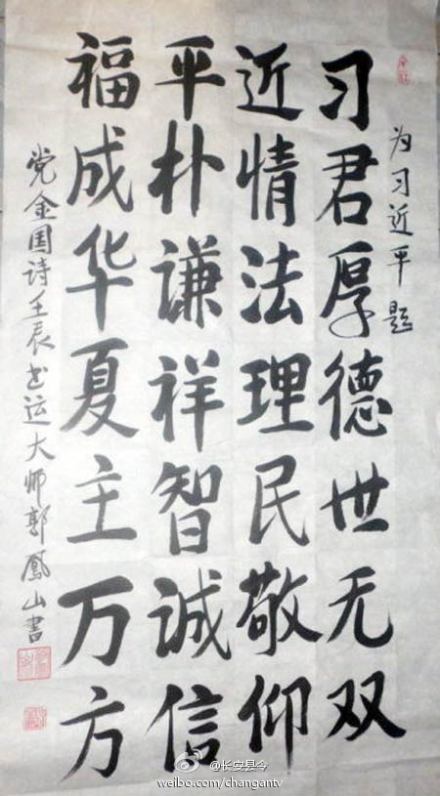 为习近平题
习君厚德世无双
近情法理民敬仰
平朴谦祥智诚信
福成华夏主万方
党金国诗壬辰书运大师郭凤山書
@长安县令
weibo.com/changantv